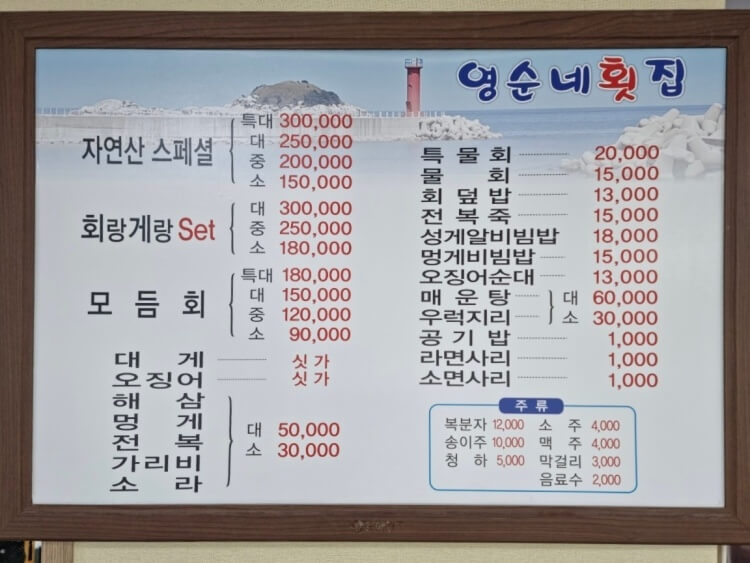 영순네횟집
자연산 스페셜
특대 300,000
대 250,000
중 200,000
소 150,000
회랑게랑 Set
대 300,000
중 250,000
소 180,000
모듬회
특대 180,000
대 150,000
중 120,000
소 90,000
대게 싯가
오징어 싯가
해삼
멍게
전복
가리비
소라
대 50,000
소 30,000
특물회 20,000
물회 15,000
회덮밥 13,000
전복죽 15,000
성게알비빔밥 18,000
멍게비빔밥 15,000
오징어순대 13,000
매운탕
우럭지리
대 60,000
소 30,000
공기밥 1,000
라면사리 1,000
소면사리 1,000
주류
복분자 12,000 소주 4,000
송이주 10,000 맥주 4,000
청하 5,000 막걸리 3,000
음료수 2,000